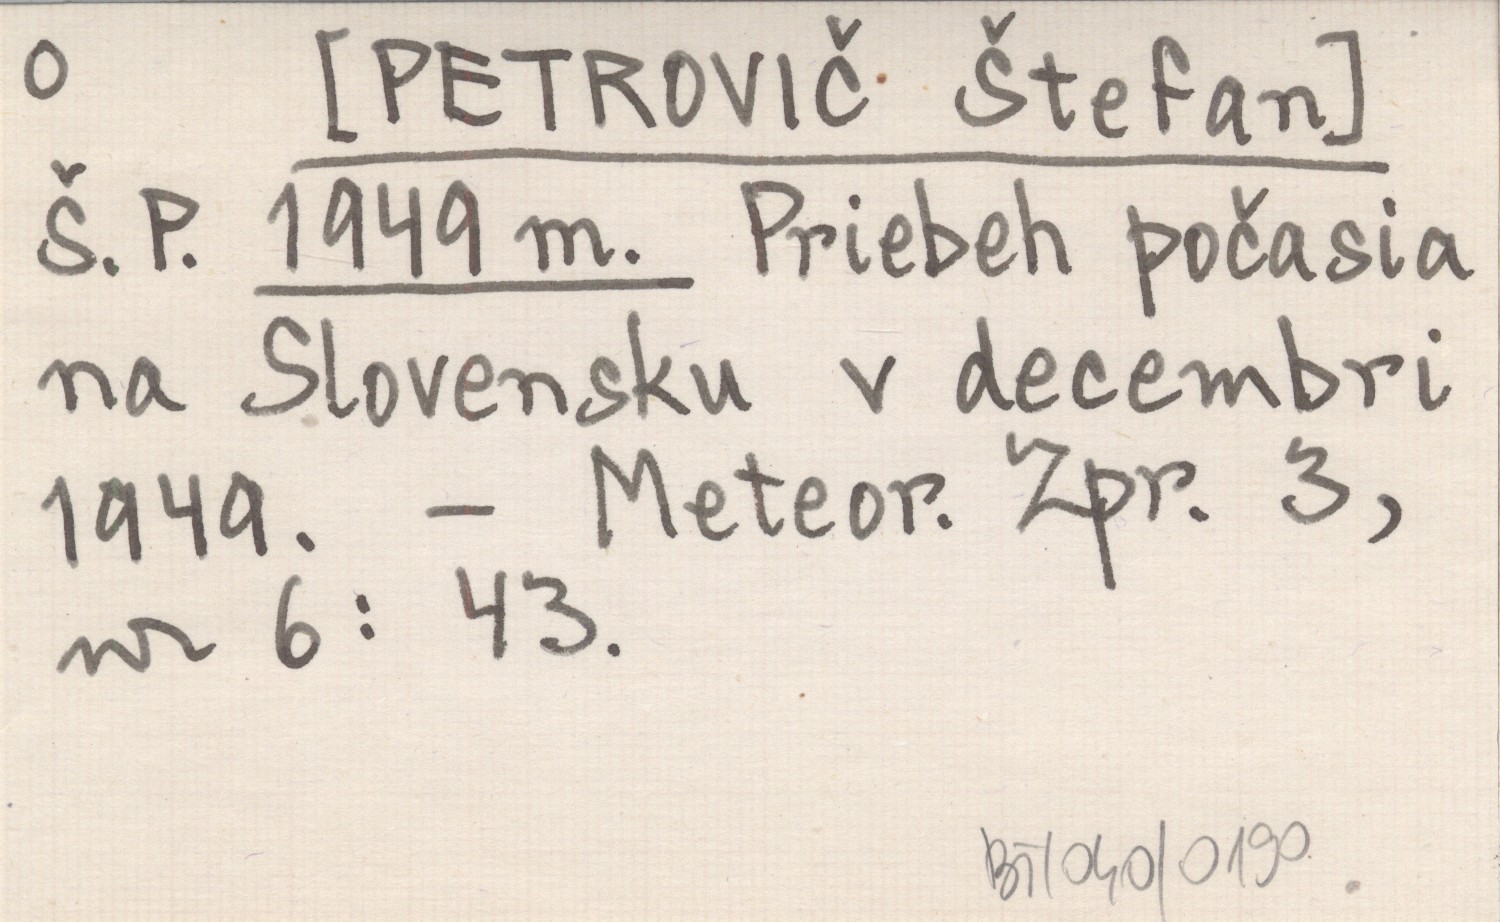 O [PETROVIČ Štefan]
Š.P. 1949 m. Priebeh počasia
na Slovensku v decembri
1949. – Meteor. Zpr. 3,
nr 6: 43.
BT/040/0190